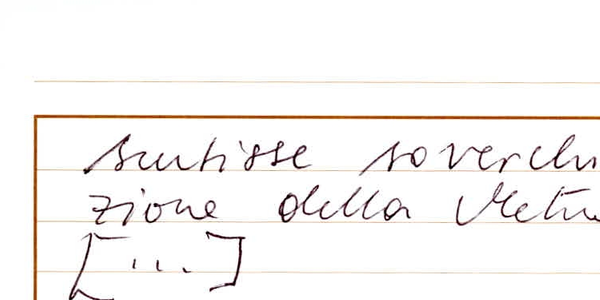 sentisse soverchi
zione della Metu
[...]